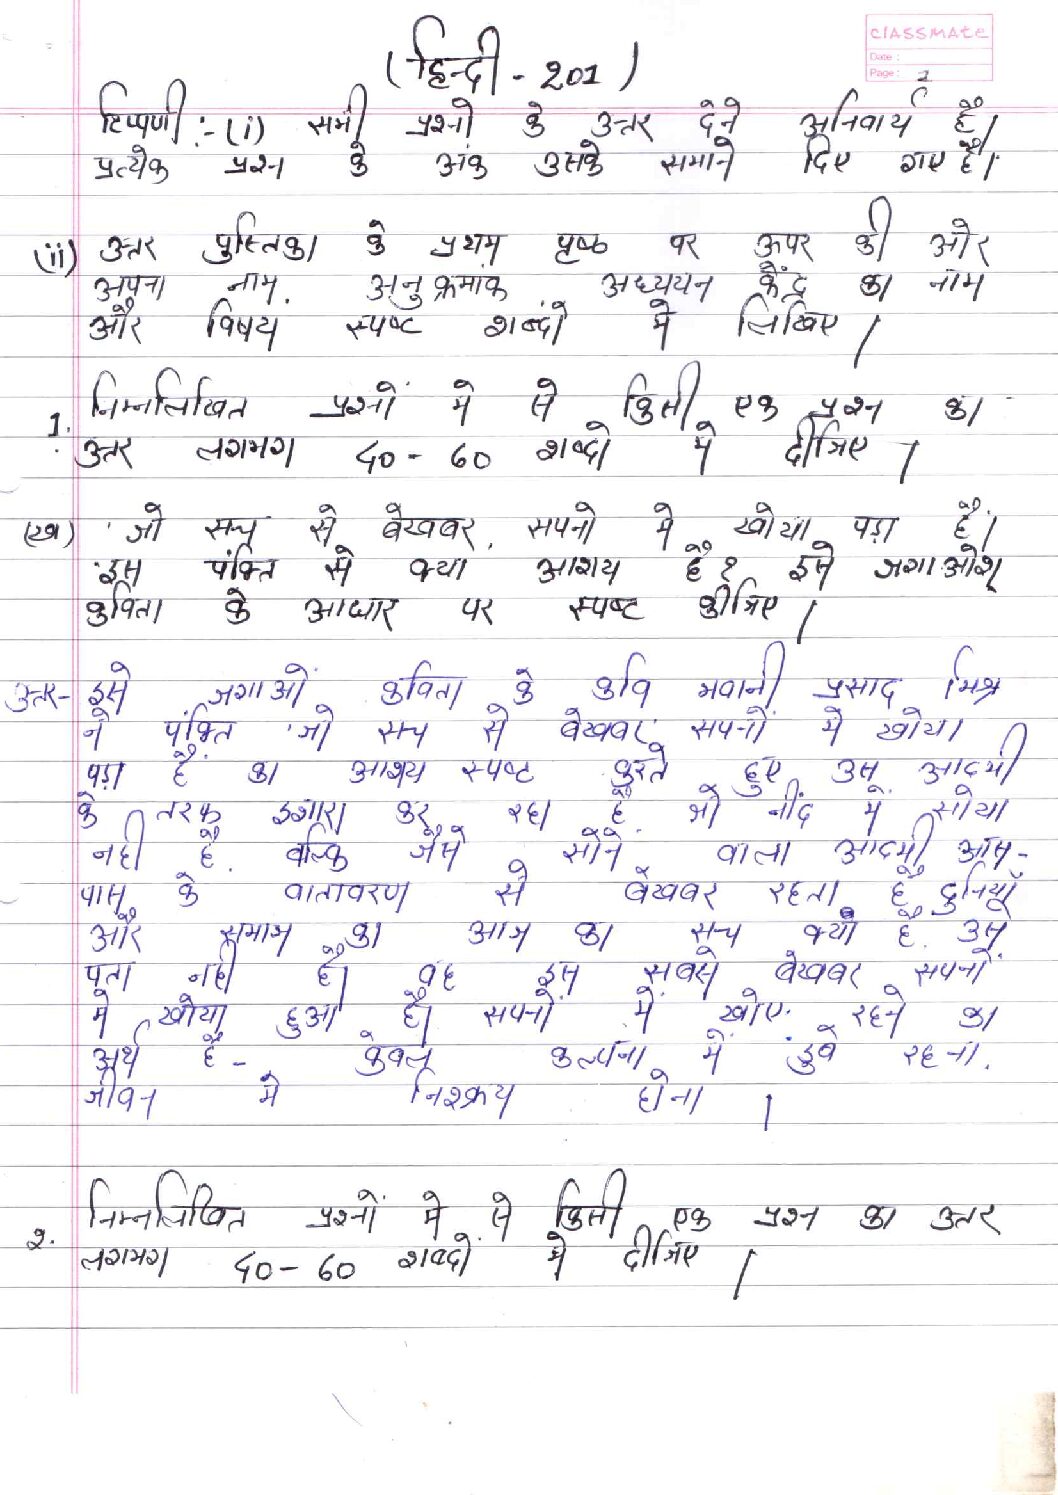 classmate
Date :
Page : 1
(हिन्दी - 201)
टिप्पणी :- (i) सभी प्रश्नो के उत्तर देने अनिवार्य हैं।
प्रत्येक प्रश्न के अंक उसके समाने दिए गए हैं।
(ii) उत्तर पुस्तिका के प्रथम पृष्ठ पर ऊपर की ओर
अपना नाम, अनुक्रमांक अध्ययन केंद्र का नाम
और विषय स्पष्ट शब्दो में लिखिए।
1. निम्नलिखित प्रश्नों में से किसी एक प्रश्न का
उत्तर लगभग 40-60 शब्दो में दीजिए।
(ख) 'जो सच से बेखबर, सपनो मे खोया पड़ा है।
इस पंक्ति से क्या आशय है? इसे जगाओश्
कविता के आधार पर स्पष्ट कीजिए।
उत्तर- इसे जगाओं कविता के कवि भवानी प्रसाद मिश्र
ने पंक्ति 'जो सच से बेखबर, सपनों में खोया
पड़ा है का आशय स्पष्ट करते हुए उस आदमी
के तरफ इशारा कर रहा है जो नींद में सोया
नही है, बल्कि जैसे सोने वाला आदमी आस-
पास के वातावरण से बेखबर रहता है, दुनियाँ
और समाज का आज का सच क्या है, उसे
पता नही है। वह इस सबसे बेखबर सपनों
में खोया हुआ है। सपनों में खोए रहने का
अर्थ है - केवल कल्पना में डुबे रहना,
जीवन मे निश्क्रय होना।
2. निम्नलिखित प्रश्नों में से किसी एक प्रश्न का उत्तर
लगभग 40-60 शब्दो में दीजिए।